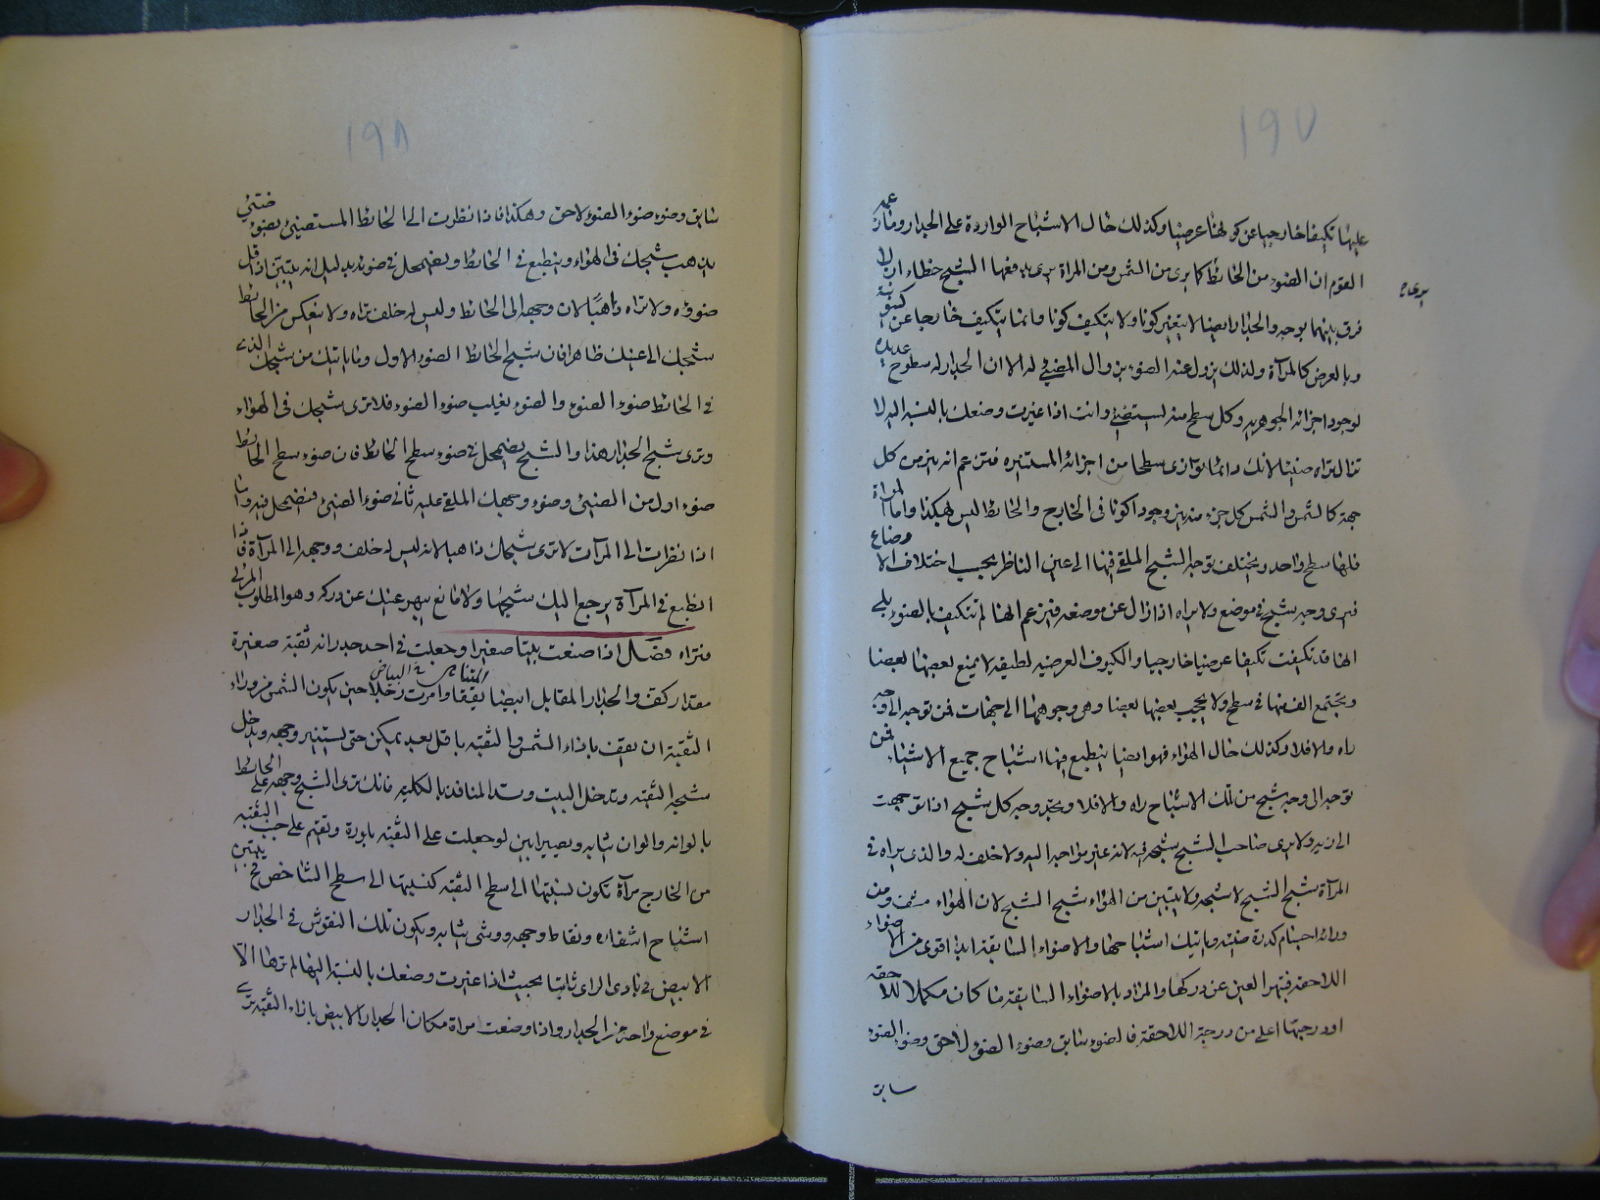 ١٩٧
عليها تكيفا خارجيا عن كونها عرضيا وكذلك حال الاشباح الواردة على الجدار وما زعمه
القوم ان الضوء من الحائط كما يرى من الشمس ومن المراة يرى يدفعها الشبح خطاء اذ لا
فرق بينهما بوجه والجدار ايضا لا يتغير كونا ولا يتكيف كونا وانما يتكيف خارجا عن كينونته
وبالعرض كالمرآة ولذلك يزول عنه الضوء بزوال المضيئ له الا ان الجدار له سطوح عديدة
لوجود اجزائه الجوهرية وكل سطح منه يستضيئ وانت اذا غيرت وضعك بالنسبة اليه لا
تزال تراه مضيئا لانك دائما توازى سطحا من اجزائه المستنيرة فتزعم انه ينير من كل
جهة كالشمس والشمس كل جزء منه ينير وجودا كونا فى الخارج والحائط ليس هكذا واما المراة
فلها سطح واحد ويختلف توجه الشبح الملقى فيها الى عين الناظر بحسب اختلاف الاوضاع
فيرى وجه شبح فى موضع ولا يراه اذا زال عن موضعه فيزعم انها لم تتكيف بالضوء بلى
انها قد تكيفت تكيفا عرضيا خارجيا والكيوف العرضية لطيفة لا يمنع بعضها بعضا
ويجتمع الف منها فى سطح ولا يحجب بعضها بعضا وهى وجوهها الى جهات فمن توجه الى وجه
راه والا فلا وكذلك حال الهواء فهو ايضا ينطبع فيها اشباح جميع الاشياء فمن
توجه الى وجه شبح من تلك الاشباح راه والا فلا ويجد وجه كل شبح اذا توجهت
الى زيد ولا يرى صاحب الشبح شبحه فيه لانه غير مواجه اليه ولا خلف له والذى يراه فى
المرآة شبح الشبح لا شبحه ولا يتبين من الهواء شبح الشبح لان الهواء مشف ومن
ورائه اجسام كدرة مضيئة وياتيك اشباحها والاضواء السابقة ابدا اقوى من الاضواء
اللاحقة فيبهر العين عن دركها والمراد بالاضواء السابقة ما كان مكملا للاحقة
او درجتها اعلى من درجة اللاحقة فالضوء سابق وضوء الضوء لاحق وضوء الضوء
سابق
١٩٨
سابق وضوء ضوء الضوء لاحق وهكذا فاذا نظرت الى الحائط المستضيئ بضوء
يذهب شبحك فى الهواء وينطبع فى الحائط ويضمحل فى ضوئه بدليل انه يتبين اذا قل
ضوؤه ولا تراه ذاهبا لان وجهه الى الحائط وليس له خلف تراه ولا ينعكس من الحائط
شبحك الى عينك ظاهرا فان شبح الحائط الضوء الاول وما ياتيك من شبحك الذى
فى الحائط ضوء الضوء والضوء يغلب ضوء الضوء فلا ترى شبحك فى الهواء
وترى شبح الجدار هذا والشبح يضمحل فى ضوء سطح الحائط فان ضوء سطح الحائط
ضوء اول من المضيئ وضوء وجهك الملقى عليه ثانى ضوء المضيئ فيضمحل فيه واما
اذا نظرت الى المرآت لا ترى شبحك ذاهبا لانه ليس له خلف ووجهه الى المرآة فاذا
انطبع فى المرآة يرجع اليك شبحها ولا مانع يبهر عينك عن دركه وهو المطلوب
فتراه فصل اذا صنعت بيتا صغيرا وجعلت فى احد جدرانه ثقبة صغيرة
مقدار كف والجدار المقابل ابيضا يققا وامرت رجلا حين يكون الشمس من وراء
الثقبة ان يقف باذاء الشمس والثقبة باقل بعد يمكن حتى يستنير وجهه ويدخل
شبحه الثقبة وتدخل البيت وتسد المنافذ بالكلية فانك ترى الشبح وجهه على الحائط
بالوانه والوان ثيابه ويصير ابين لو جعلت على الثقبة بلورة وتقيم على جنب الثقبة
من الخارج مرآة تكون نسبتها الى سطح الثقبة كنسبتها الى سطح الشاخص فح يتبين
اشباح اشفاره ونقاط وجهه ووشى ثيابه ويكون تلك النقوش فى الجدار
الابيض فى بادى الراى ثابتا بحيث اذا غيرت وضعك بالنسبة اليها لم ترها الا
فى موضع واحد من الجدار واذا وضعت مراة مكان الجدار الابيض باذاء الثقبة ترى